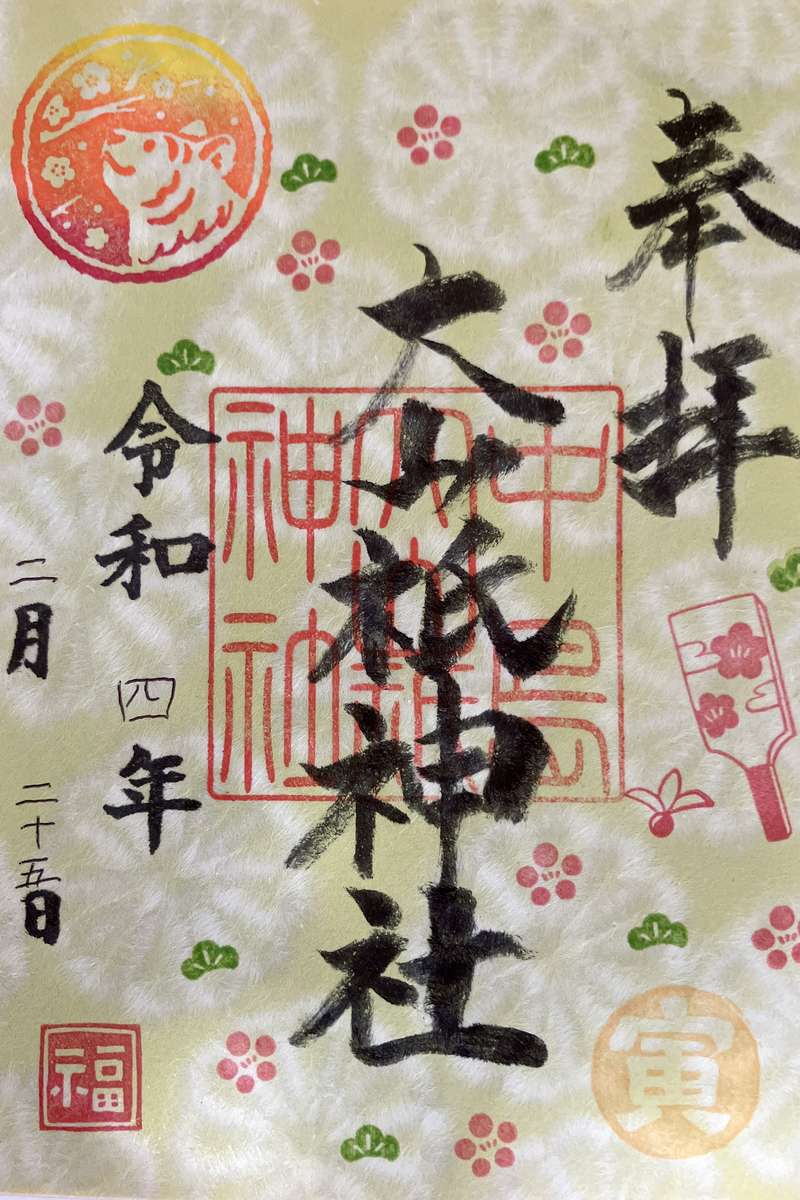 奉拝
大山祇神社
中島
神社
令和四年
二月二十五日
寅
福